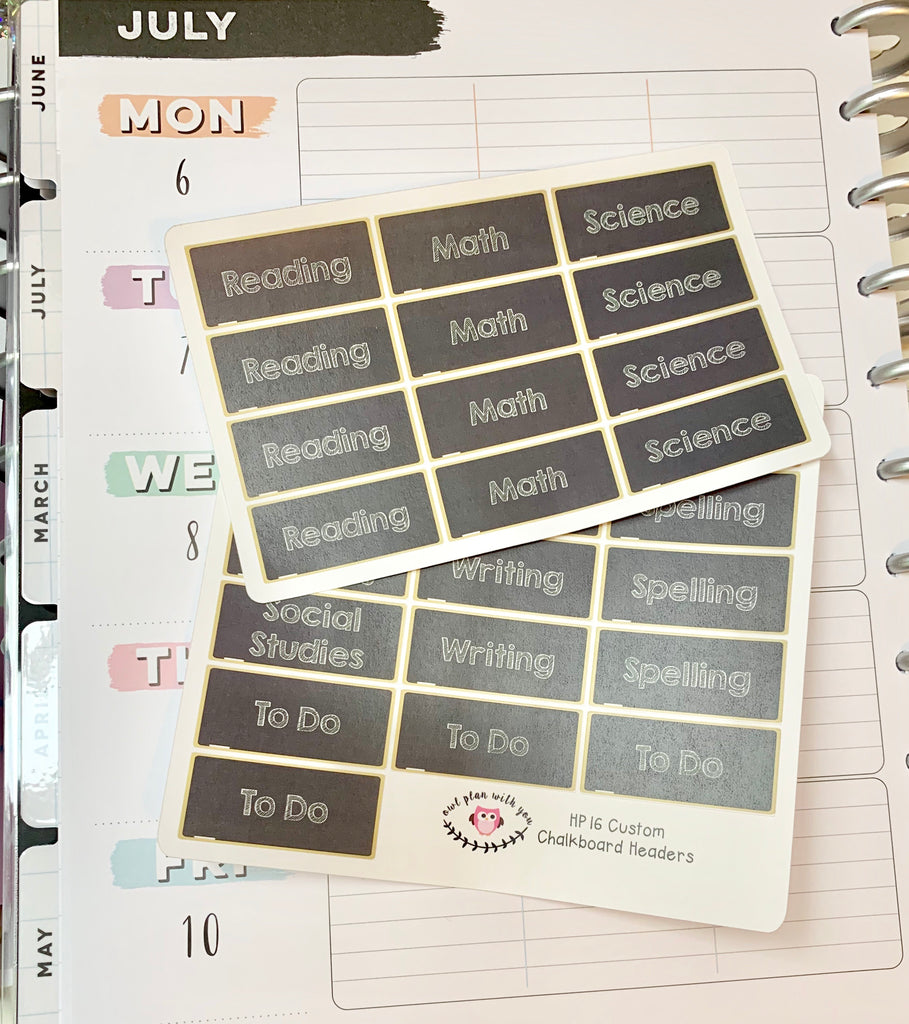 JULY
JUNE
JULY
MARCH
APRIL
MAY
MON
6
8
10
Reading Math Science
Reading Math Science
Reading Math Science
Reading Math Science
Spelling
Writing Spelling
Social
Studies
Writing Spelling
To Do To Do To Do
To Do
owl plan with you
HP 16 Custom
Chalkboard Headers